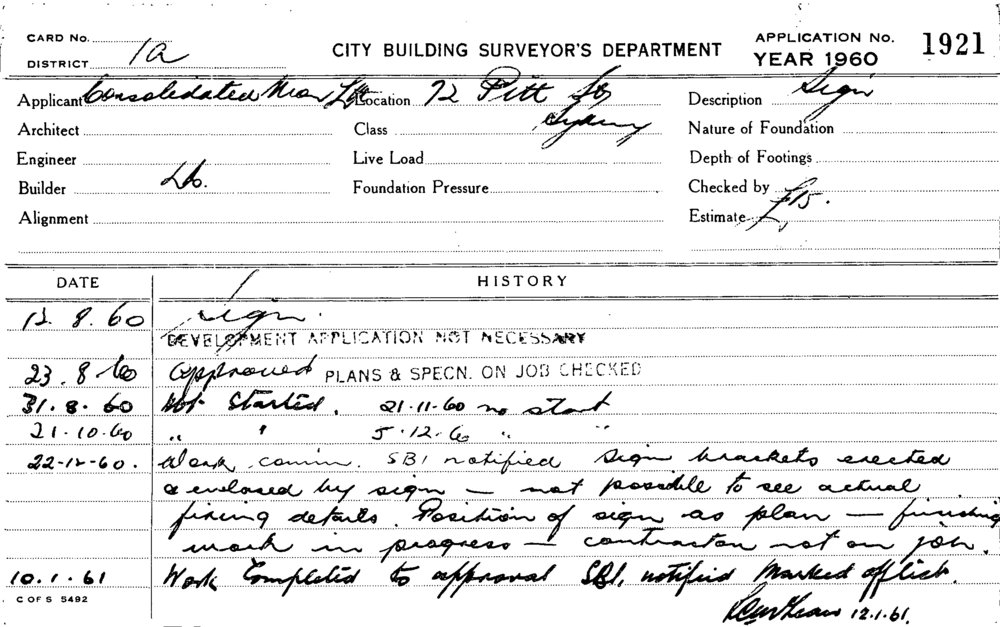 CARD No.
DISTRICT 1a
CITY BUILDING SURVEYOR'S DEPARTMENT
APPLICATION No. 1921
YEAR 1960
Applicant Consolidated Neon Location 72 Pitt St Sydney Description Sign
Architect Class Nature of Foundation
Engineer Live Load Depth of Footings
Builder Foundation Pressure Checked by
Alignment Estimate £15.
DATE HISTORY
8.60 Sign.
DEVELOPMENT APPLICATION NOT NECESSARY
23.8.60 Approved PLANS & SPECN. ON JOB CHECKED
31.8.60 Not Started. 21.11.60 no start
21.10.60 " " 5.12.60 " "
22-12-60. Work comm. SBI notified Sign brackets erected
& enclosed by sign — not possible to see actual
fixing details. Position of sign as plan — finishing
work in progress — contractor not on job.
10.1.61 Work Completed to approval SBI. notified Marked off list.
C OF S 5492
12.1.61.